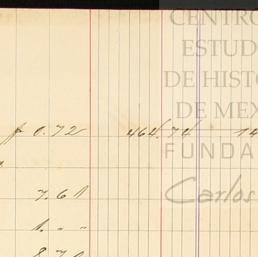 CENTRO
ESTUD
DE HISTO
DE MEX
FUNDA
Carlos
p 0.72 464.74 14
7.61
1. " "
8.70